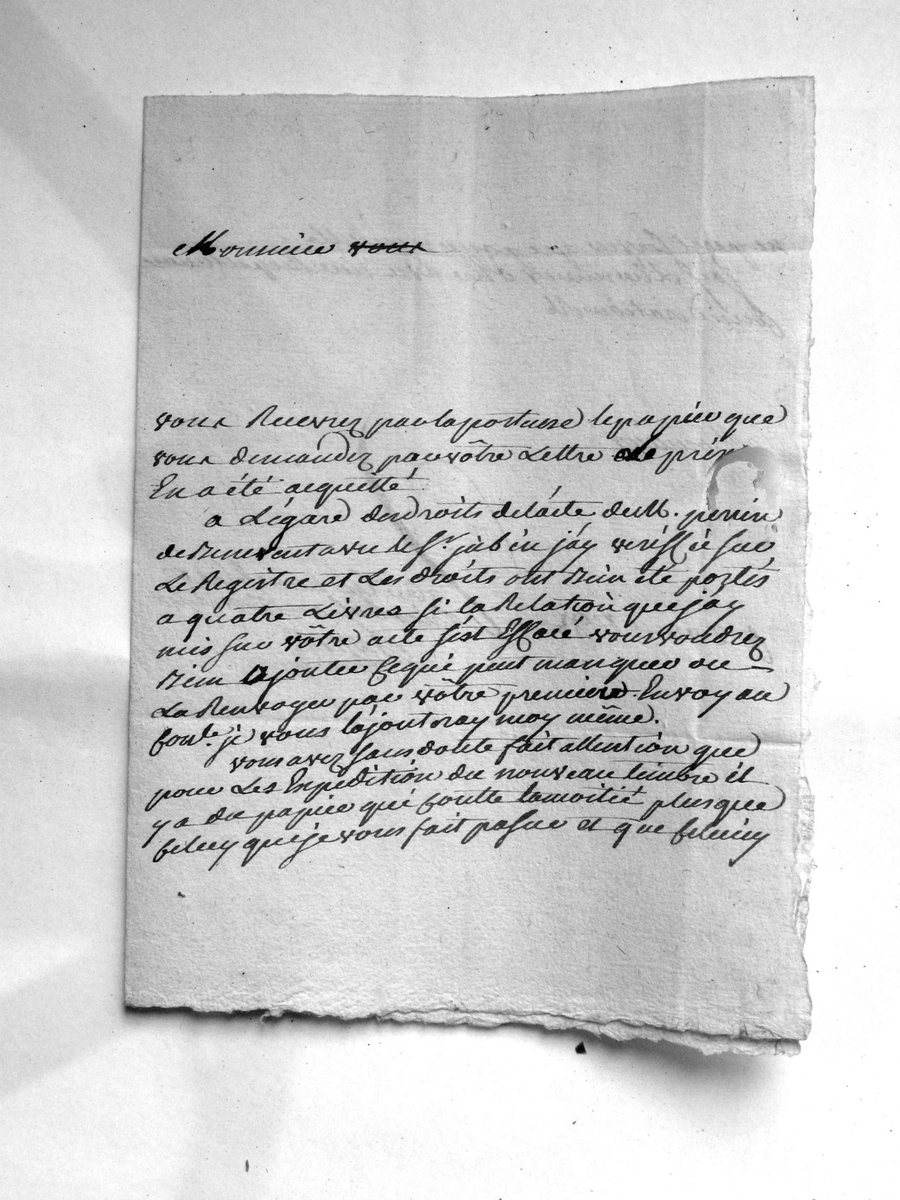 Monsieur vous
vous Recevrez par la porteuse le papier que
vous demandez par vôtre Lettre le prix
En a été acquitté
a Légard des Droits de lacte de M. perrin
de Benevent avec le Sr. jubin jáy veriffié sur
Le Registre et Les droits ont bien été portés
a quatre Livres si la Relation que jay
mis sur vôtre acte s'est Effacé vous voudrez
bien ajouter ce qui peut manquer ou
La Renvoyer par vôtre premiere Envoy au
je vous lájoutray moy même.
vous avez sans doute fait attention que
pour Les Expédition du nouveau timbre il
y a du papier qui coutte la moitié plus que
celuy que je vous fait passer et que celuicy